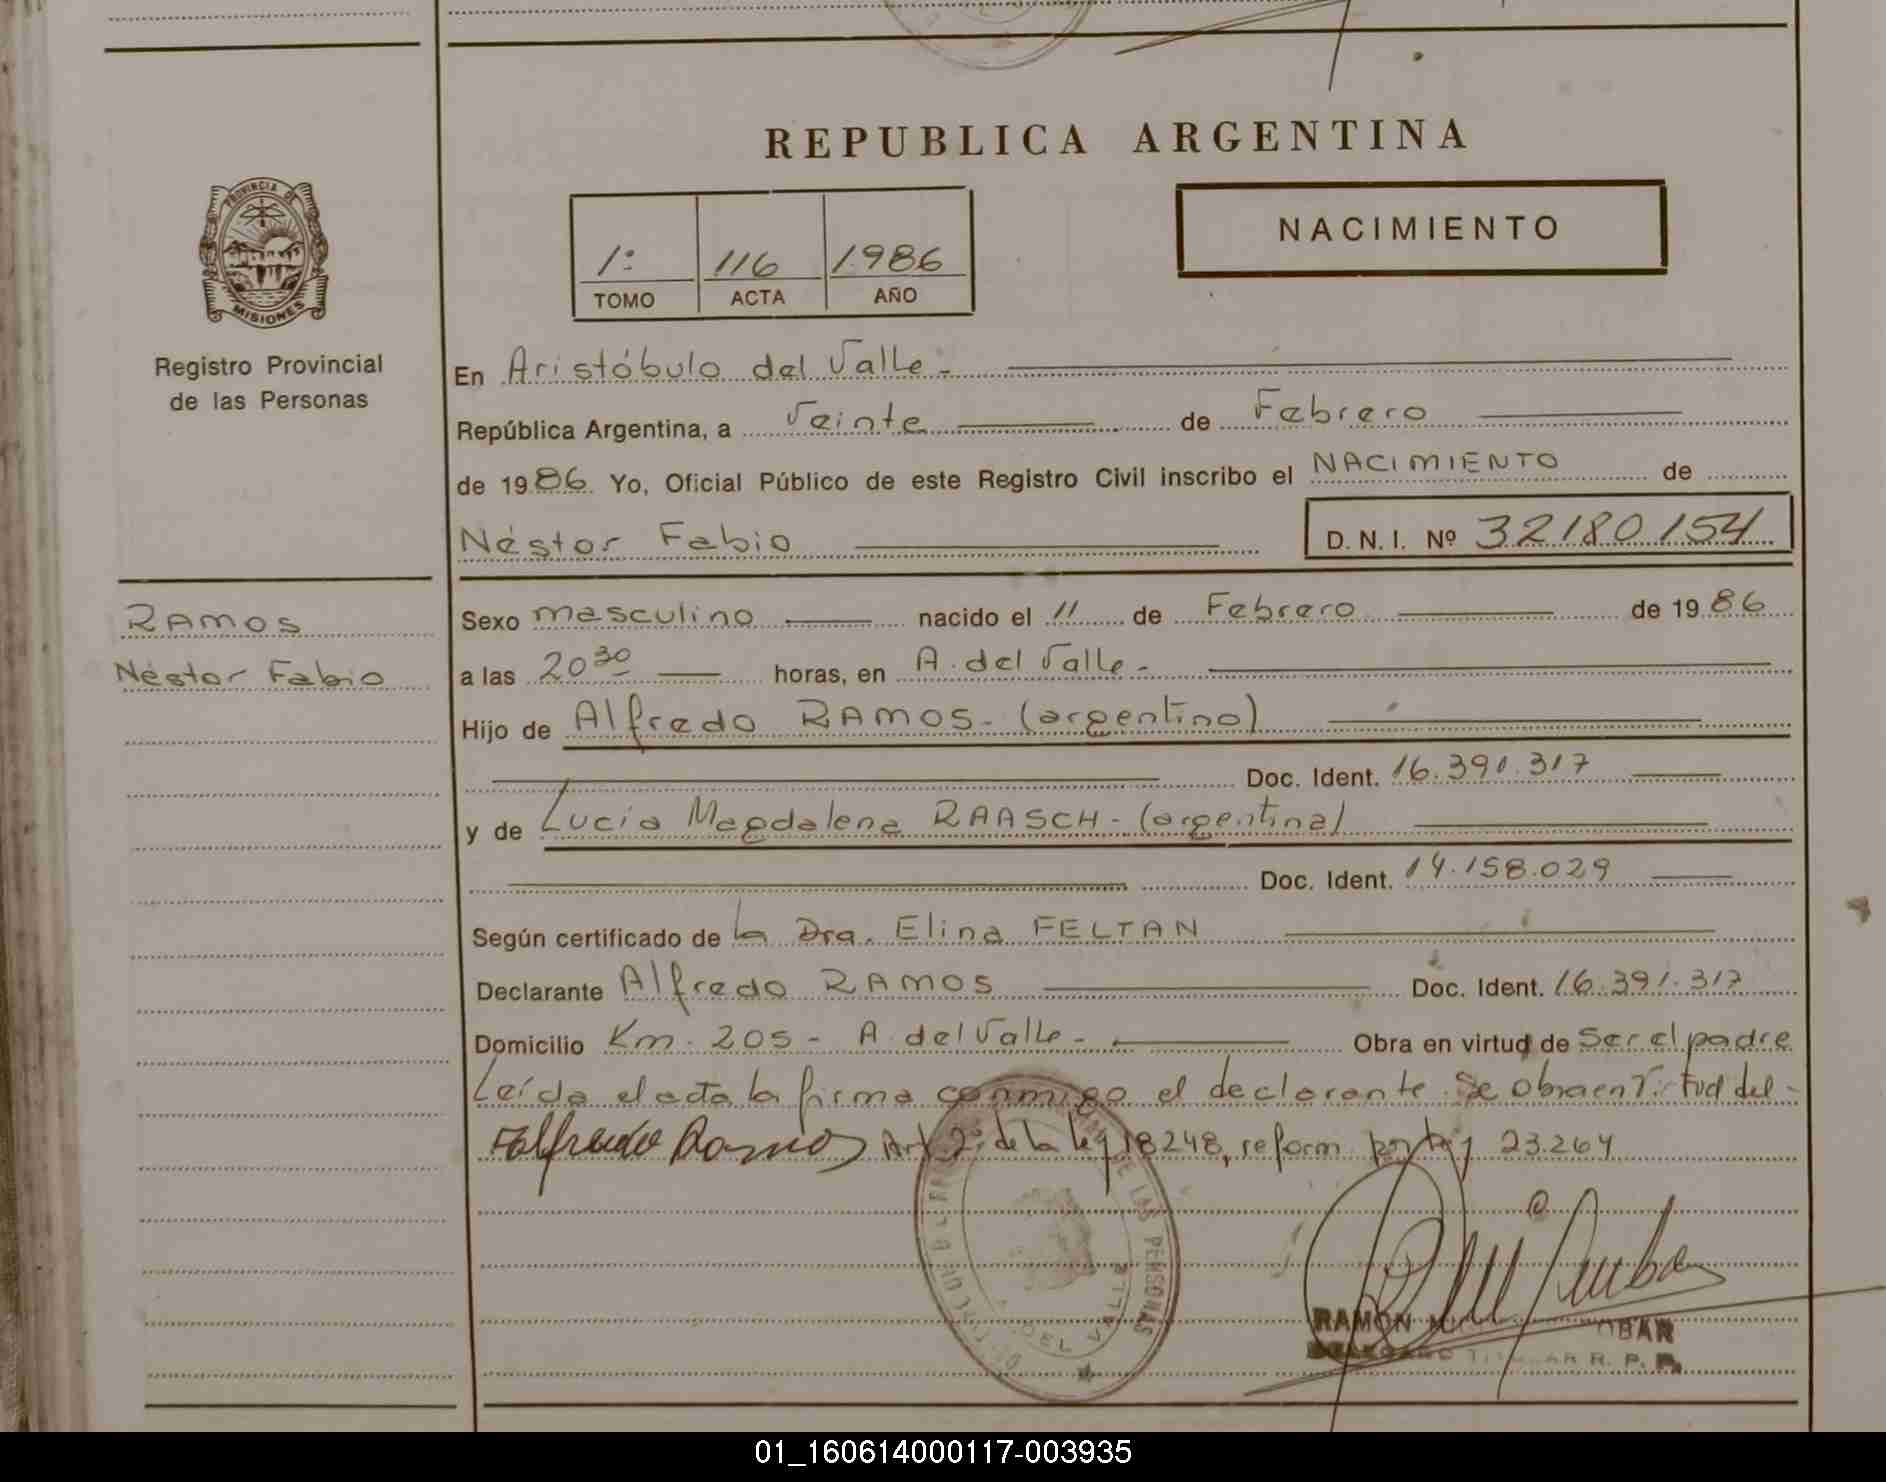 REPUBLICA ARGENTINA
PROVINCIA DE
MISIONES
Registro Provincial
de las Personas
1º 116 1986
TOMO ACTA AÑO
NACIMIENTO
En Aristóbulo del Valle -
República Argentina, a Veinte de Febrero
de 1986 Yo, Oficial Público de este Registro Civil inscribo el NACIMIENTO de
Néstor Fabio D. N. I. Nº 32180154
RAMOS
Néstor Fabio
Sexo masculino nacido el 11 de Febrero de 1986
a las 20 30 horas, en A. del Valle -
Hijo de Alfredo RAMOS - (argentino)
Doc. Ident. 16.391.317
y de Lucía Magdalena RAASCH - (argentina)
Doc. Ident. 14.158.029
Según certificado de la Dra. Elina FELTAN
Declarante Alfredo RAMOS Doc. Ident. 16.391.317
Domicilio Km. 205 - A. del Valle - Obra en virtud de Ser el padre
Leída el acta la firma conmigo el declarante. Se obra en virtud del -
Alfredo Ramos Art. 2º de la ley 18248, reform. por ley 23.264
DE LAS PERSONAS
DEL VALLE
RAMON
TITULAR R. P. P.
01_160614000117-003935